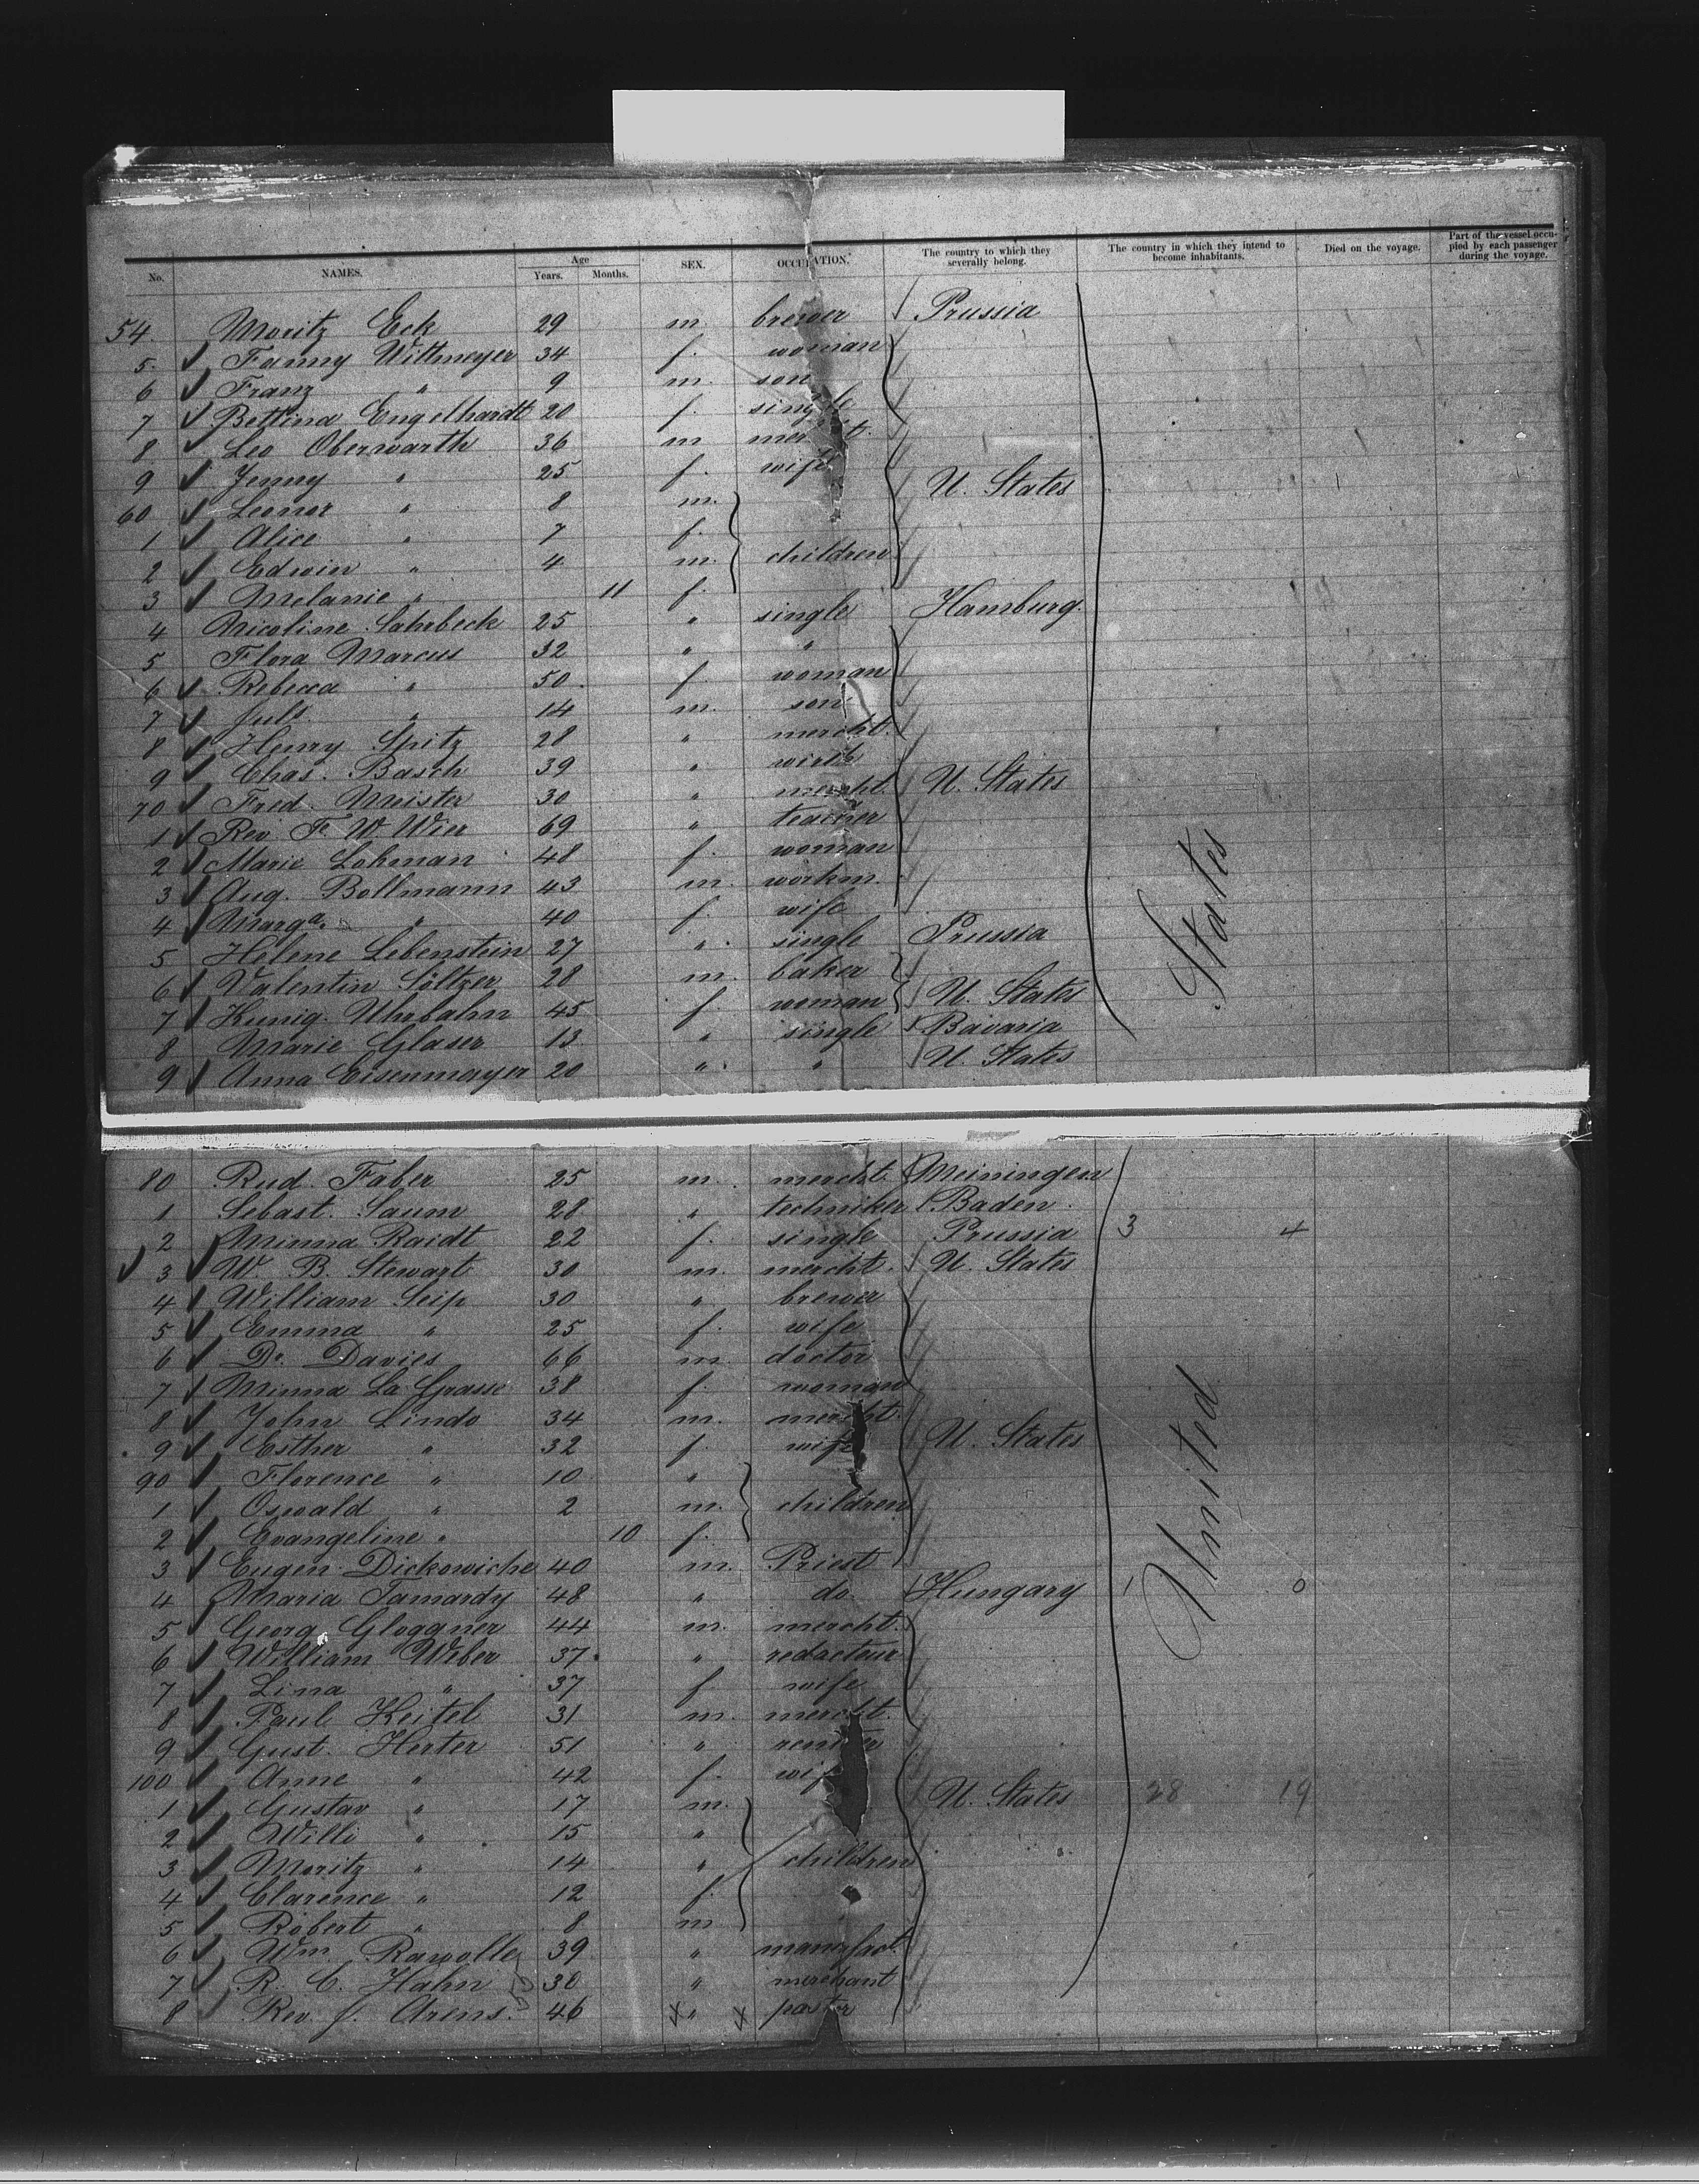 No. NAMES. Age Years. Months. SEX. OCCUPATION. The country to which they severally belong. The country in which they intend to become inhabitants. Died on the voyage. Part of the vessel occupied by each passenger during the voyage.
54. Moritz Eck 29 m. brewer Prussia
5. Fanny Wittmeyer 34 f. woman
6 Franz " 9 m. son
7 Bettina Engelhardt 20 f. single
8 Leo Oberwarth 36 m mercht.
9 Jenny " 25 f. wife U. States
60 Leonor " 8 m.
1 Alice " 7 f.
2 Edwin " 4 m. children
3 Melanie " 11 f.
4 Nicoline Sahrbeck 25 " single Hamburg.
5 Flora Marcus 32 " "
6 Rebecca " 50 f woman
7 Juls. " 14 m. son
8 Henry Spitz 28 " mercht.
9 Chas. Basch 39 " wirth U. States
70 Fred. Meister 30 " mercht.
1 Rev. F. W. Wier 69 " teacher
2 Marie Lohman 48 f. woman
3 Aug. Bollmann 43 m. workm.
4 Marga. " 40 f. wife
5 Helene Lebenstein 27 " single Prussia
6 Valentin Söltzer 28 m. baker
7 Kunig. Uhrbahn 45 f. woman U. States
8 Marie Glaser 13 " single Bavaria
9 Anna Eisenmayer 20 " " U. States
80 Rud. Faber 25 m. mercht. Meiningen
1 Sebast. Saum 28 " techniker Baden.
2 Minna Raidt 22 f. single Prussia 3 4
3 W. B. Stewart 30 m. mercht. U. States
4 William Seip 30 " brewer
5 Emma " 25 f. wife
6 Dr. Davies 66 m. doctor
7 Minna La Grasse 38 f. woman
8 John Lindo 34 m. mercht.
9 Esther " 32 f. wife U. States
90 Florence " 10 "
1 Oswald " 2 m. children
2 Evangeline " 10 f.
3 Eugen Dickowiche 40 m. Priest
4 Maria Tamardy 48 " do. Hungary 1 0
5 Georg Gloggner 44 m. mercht.
6 William Weber 37 " redacteur
7 Lina " 37 f wife
8 Paul Keitel 31 m. mercht.
9 Gust. Herter 51 " rentier
100 Anne " 42 f. wife
1 Gustav " 17 m. U. States 28 19
2 Willi " 15 "
3 Moritz " 14 " children
4 Clarence " 12 f.
5 Robert " 8 m
6 Wm. Rawolle 39 " manufact.
7 R. C. Hahn 30 " merchant
8 Rev. J. Arens. 46 " pastor
United States